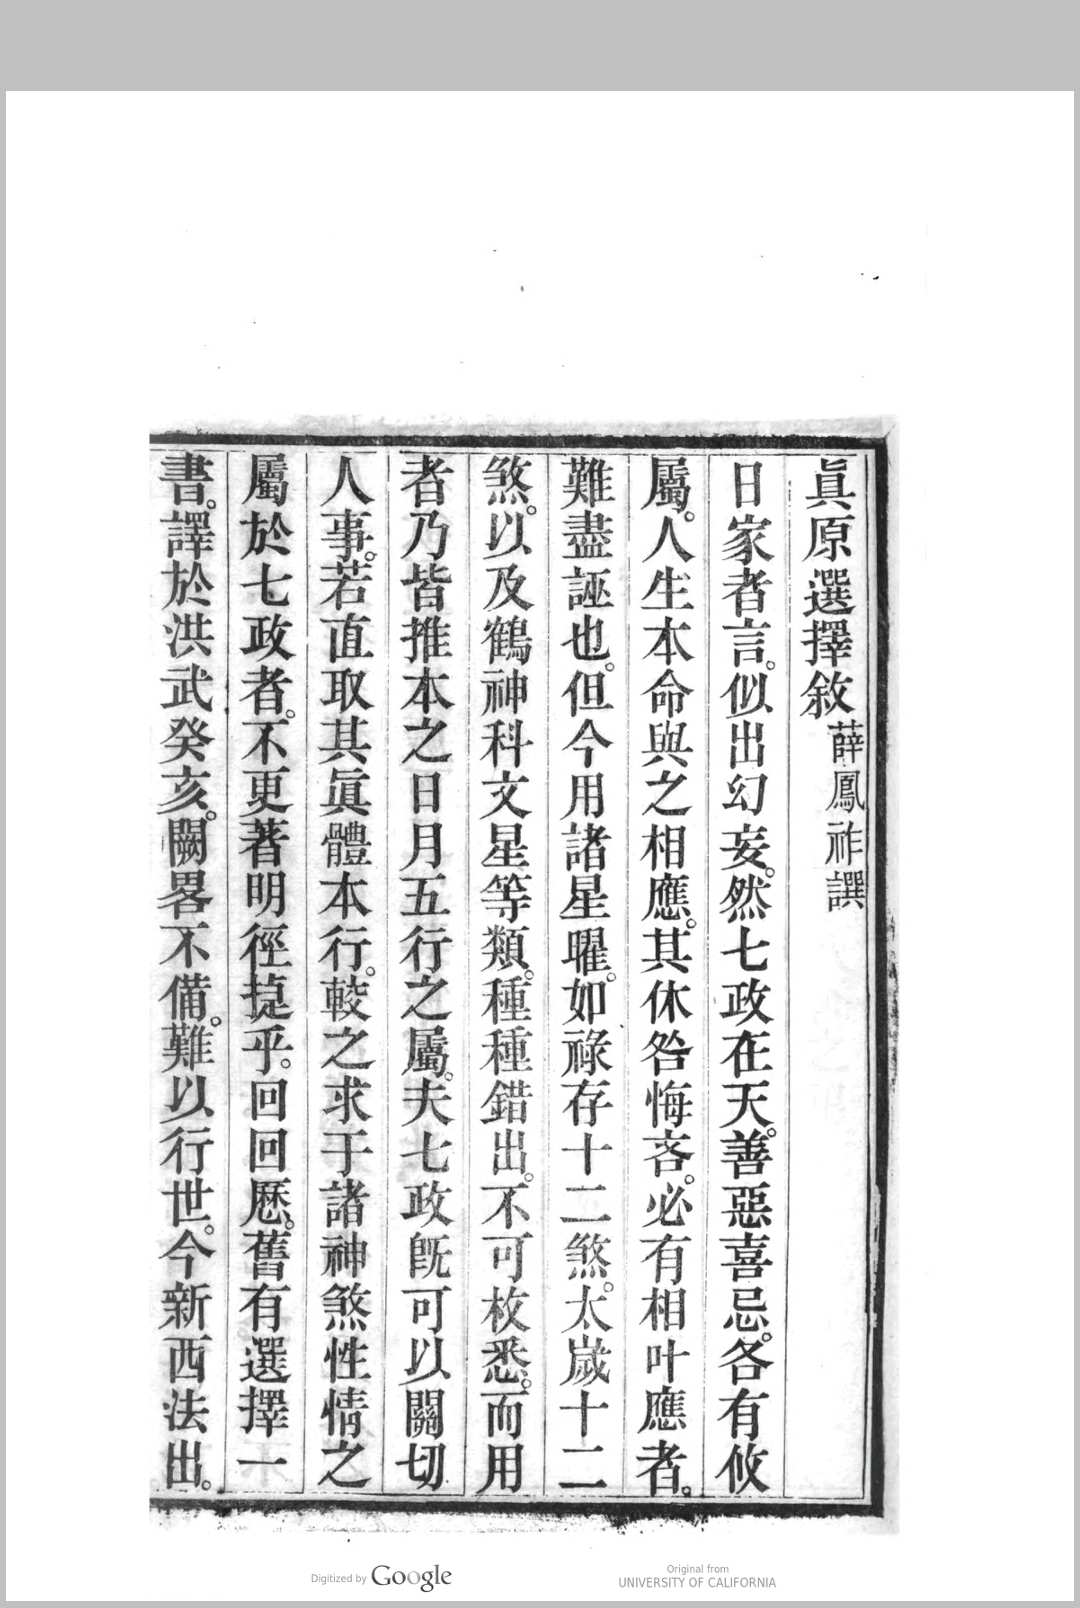 眞原選擇敘 薛鳳祚譔
日家者言。似出幻妄。然七政在天。善惡喜忌。各有攸
屬。人生本命與之相應。其休咎悔吝。必有相叶應者。
難盡誣也。但今用諸星曜。如祿存十二煞。太歲十二
煞。以及鶴神科文星等類。種種錯出。不可枚悉。而用
者乃皆推本之日月五行之屬。夫七政旣可以關切
人事。若直取其眞體本行。較之求于諸神煞性情之
屬於七政者。不更著明徑㨗乎。回回厯。舊有選擇一
書。譯於洪武癸亥。闕畧不備。難以行世。今新西法出。
Digitized by Google
Original from
UNIVERSITY OF CALIFORNIA